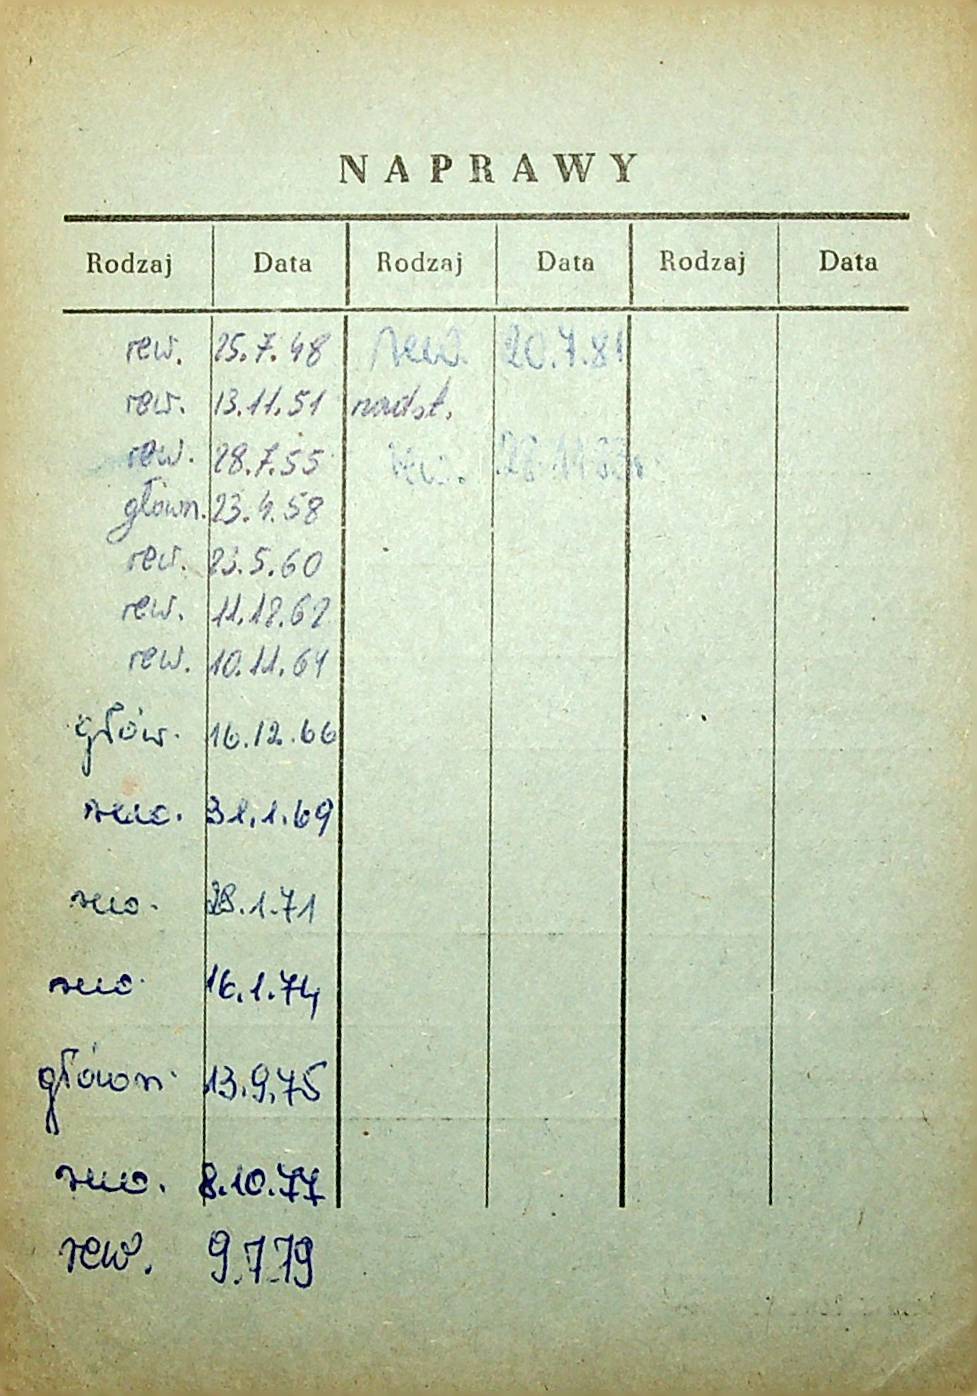 NAPRAWY
Rodzaj Data Rodzaj Data Rodzaj Data
rew. 25.7.48 rew. 20.7.81
rew. 13.11.51 nadst.
rew. 28.7.55 rew. 28.11.83r.
główn. 23.4.58
rew. 23.5.60
rew. 11.12.62
rew. 10.11.64
głów. 16.12.66
rew. 31.1.69
rew. 28.1.71
rew. 16.1.74
główn. 13.9.75
rew. 8.10.77
rew. 9.7.79